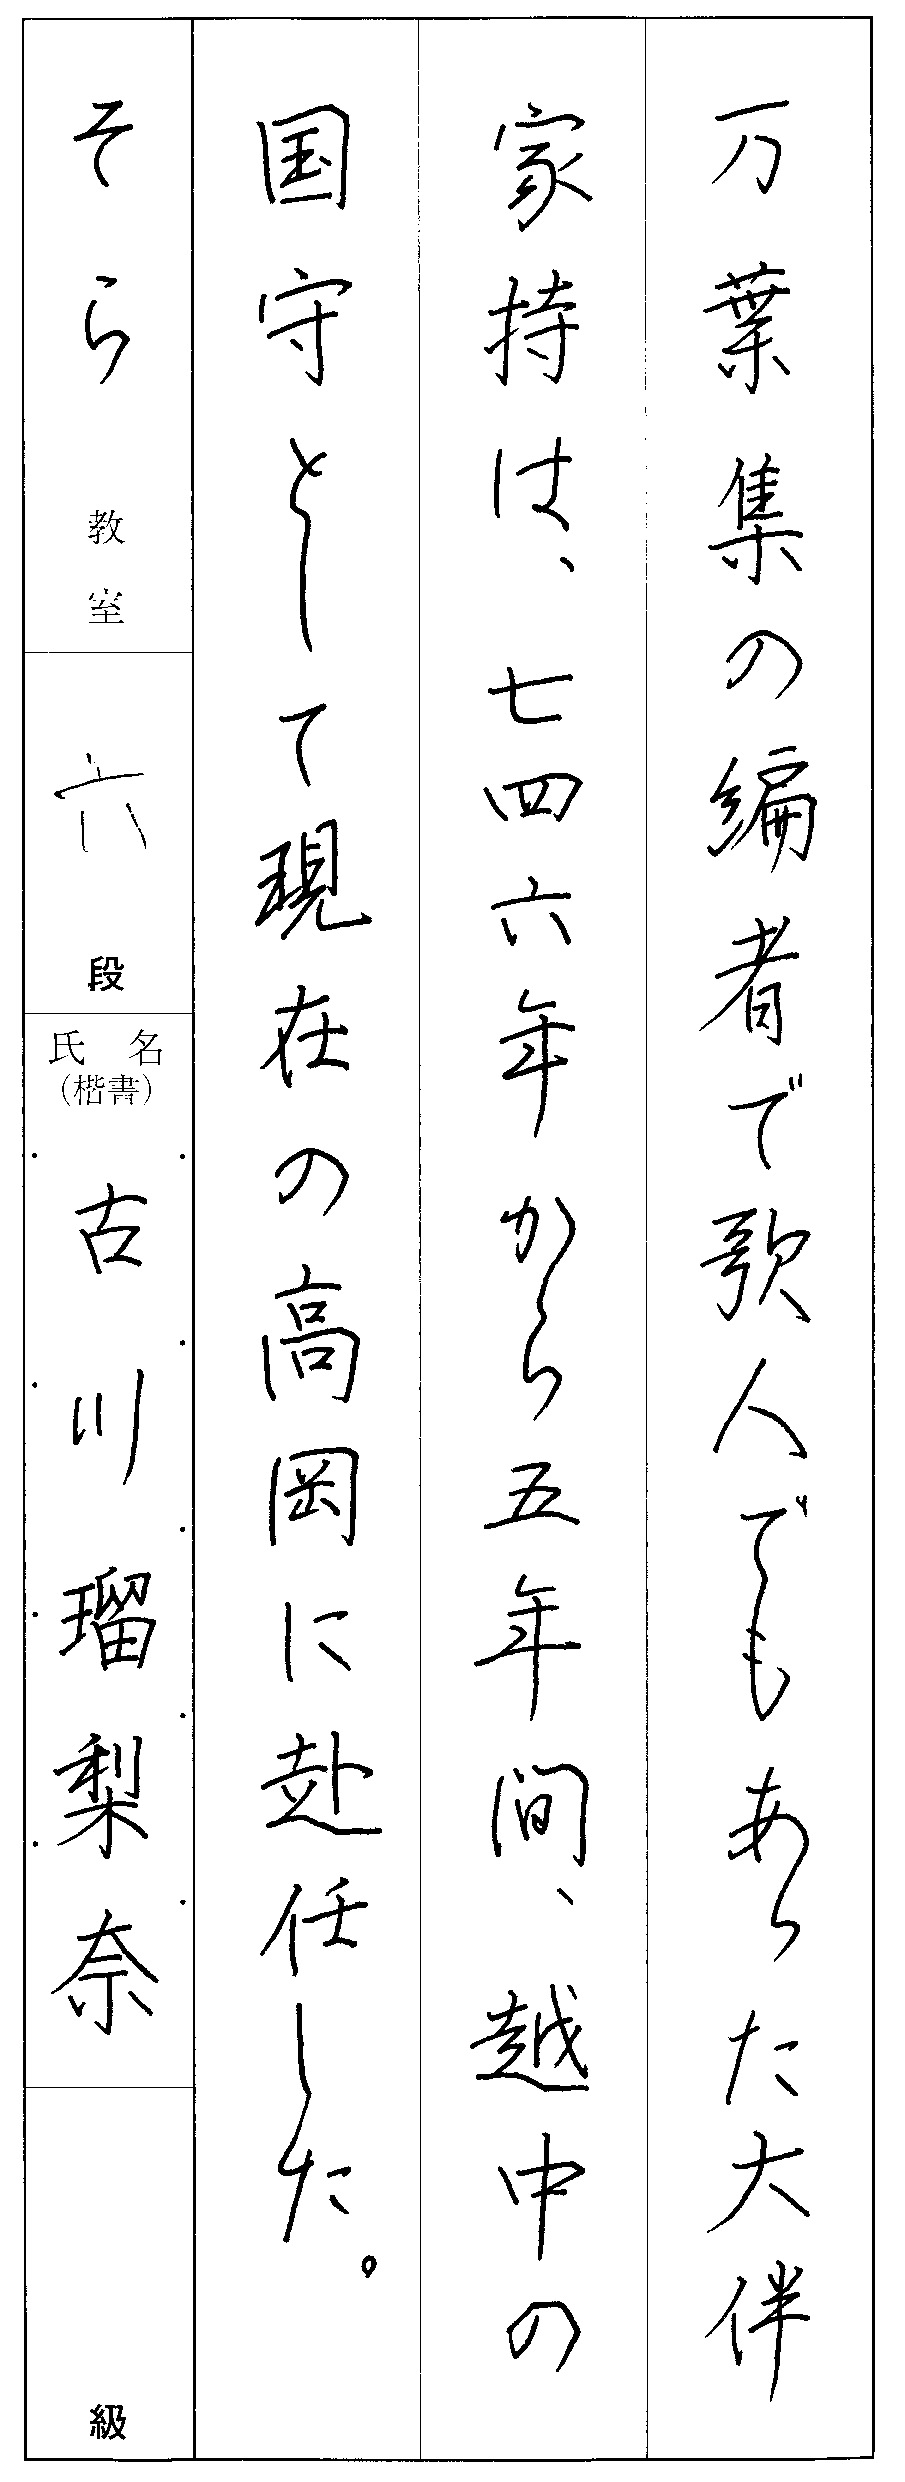 万葉集の編者で歌人でもあった大伴
家持は、七四六年から五年間、越中の
国守として現在の高岡に赴任した。
そら教室
六段
氏名
(楷書)
古川瑠梨奈
級